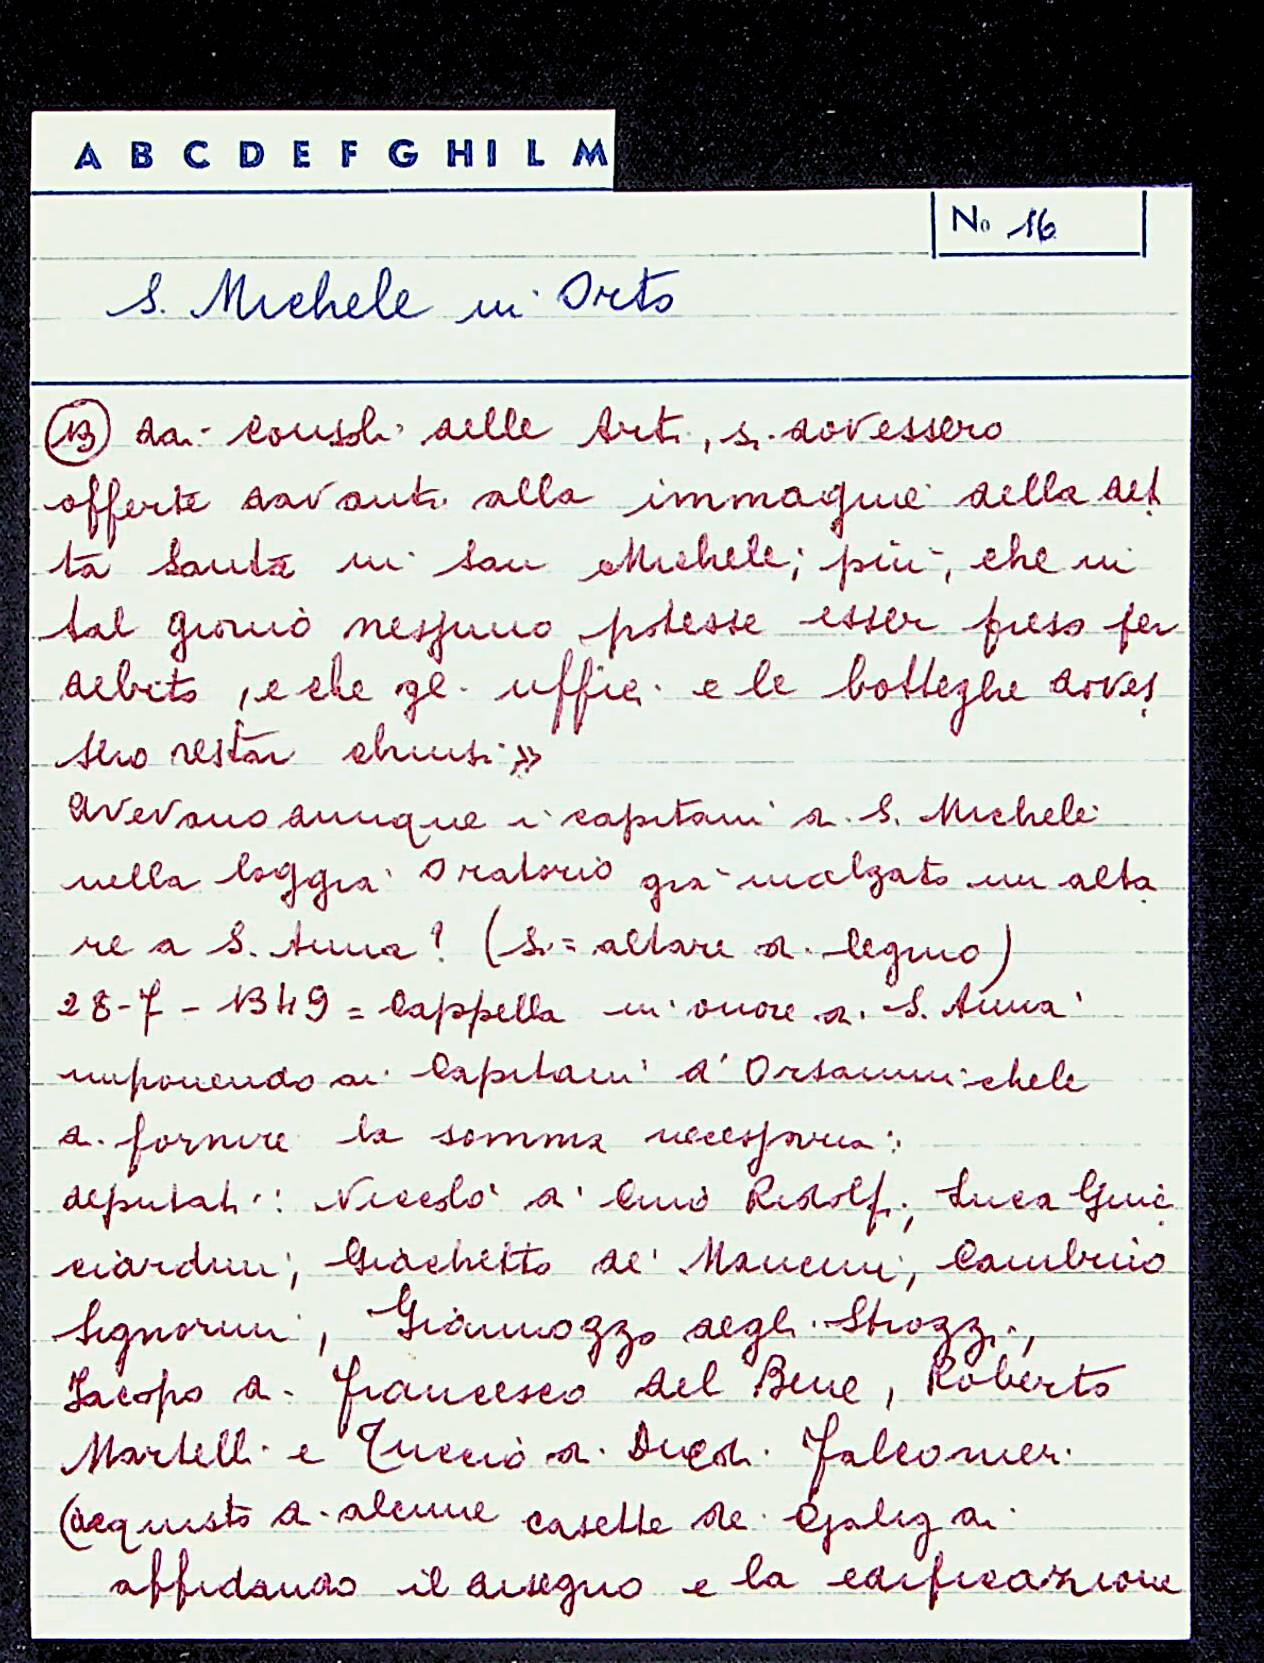 A B C D E F G H I L M
No 16
S. Michele in Orto
(13) dai Consoli delle Arti, si dovessero
offerte davanti alla immagine della det
ta Santa in San Michele; più, che in
tal giorno nessuno potesse esser preso per
debito, e che gli uffici e le botteghe doves
sero restar chiusi»
Avevano dunque i capitani di S. Michele
nella loggia Oratorio già inalzato un alta
re a S. Anna? (Sì = altare di legno)
28-7-1349 = Cappella in onore di S. Anna
imponendo ai Capitani d'Orsanmichele
di fornire la somma necessaria:
deputati: Niccolò di Cino Ridolfi, Luca Guic
ciardini, Giachetto de' Mancini, Cambino
Signorini, Giannozzo degli Strozzi,
Jacopo di Francesco del Bene, Roberto
Martelli e Tuccio di Falconieri
(acquisto di alcune casette de Galigai
affidando il disegno e la edificazione